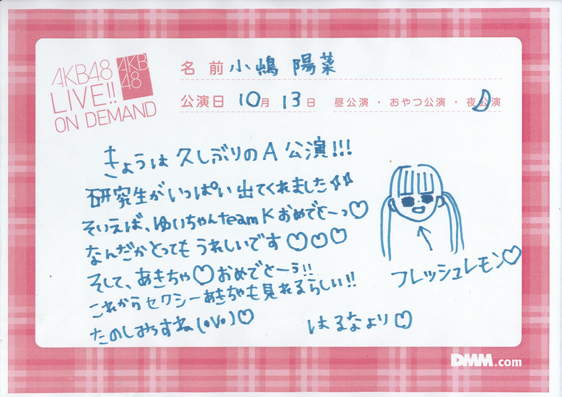 AKB48
LIVE!!
ON DEMAND
AKB
48
名 前 小嶋 陽菜
公演日 10月 13日 昼公演・おやつ公演・夜公演
きょうは久しぶりのA公演!!!
研究生がいっぱい出てくれました☆☆
そいえば、ゆいちゃんteamKおめでとーっ♡
なんだかとってもうれしいです♡♡♡
そして、あきちゃ♡おめでとーう!!
これからセクシーあきちゃも見れるらしい!!
たのしみちすね(ov0)♡
フレッシュレモン♡
はるなより♡
DMM.com